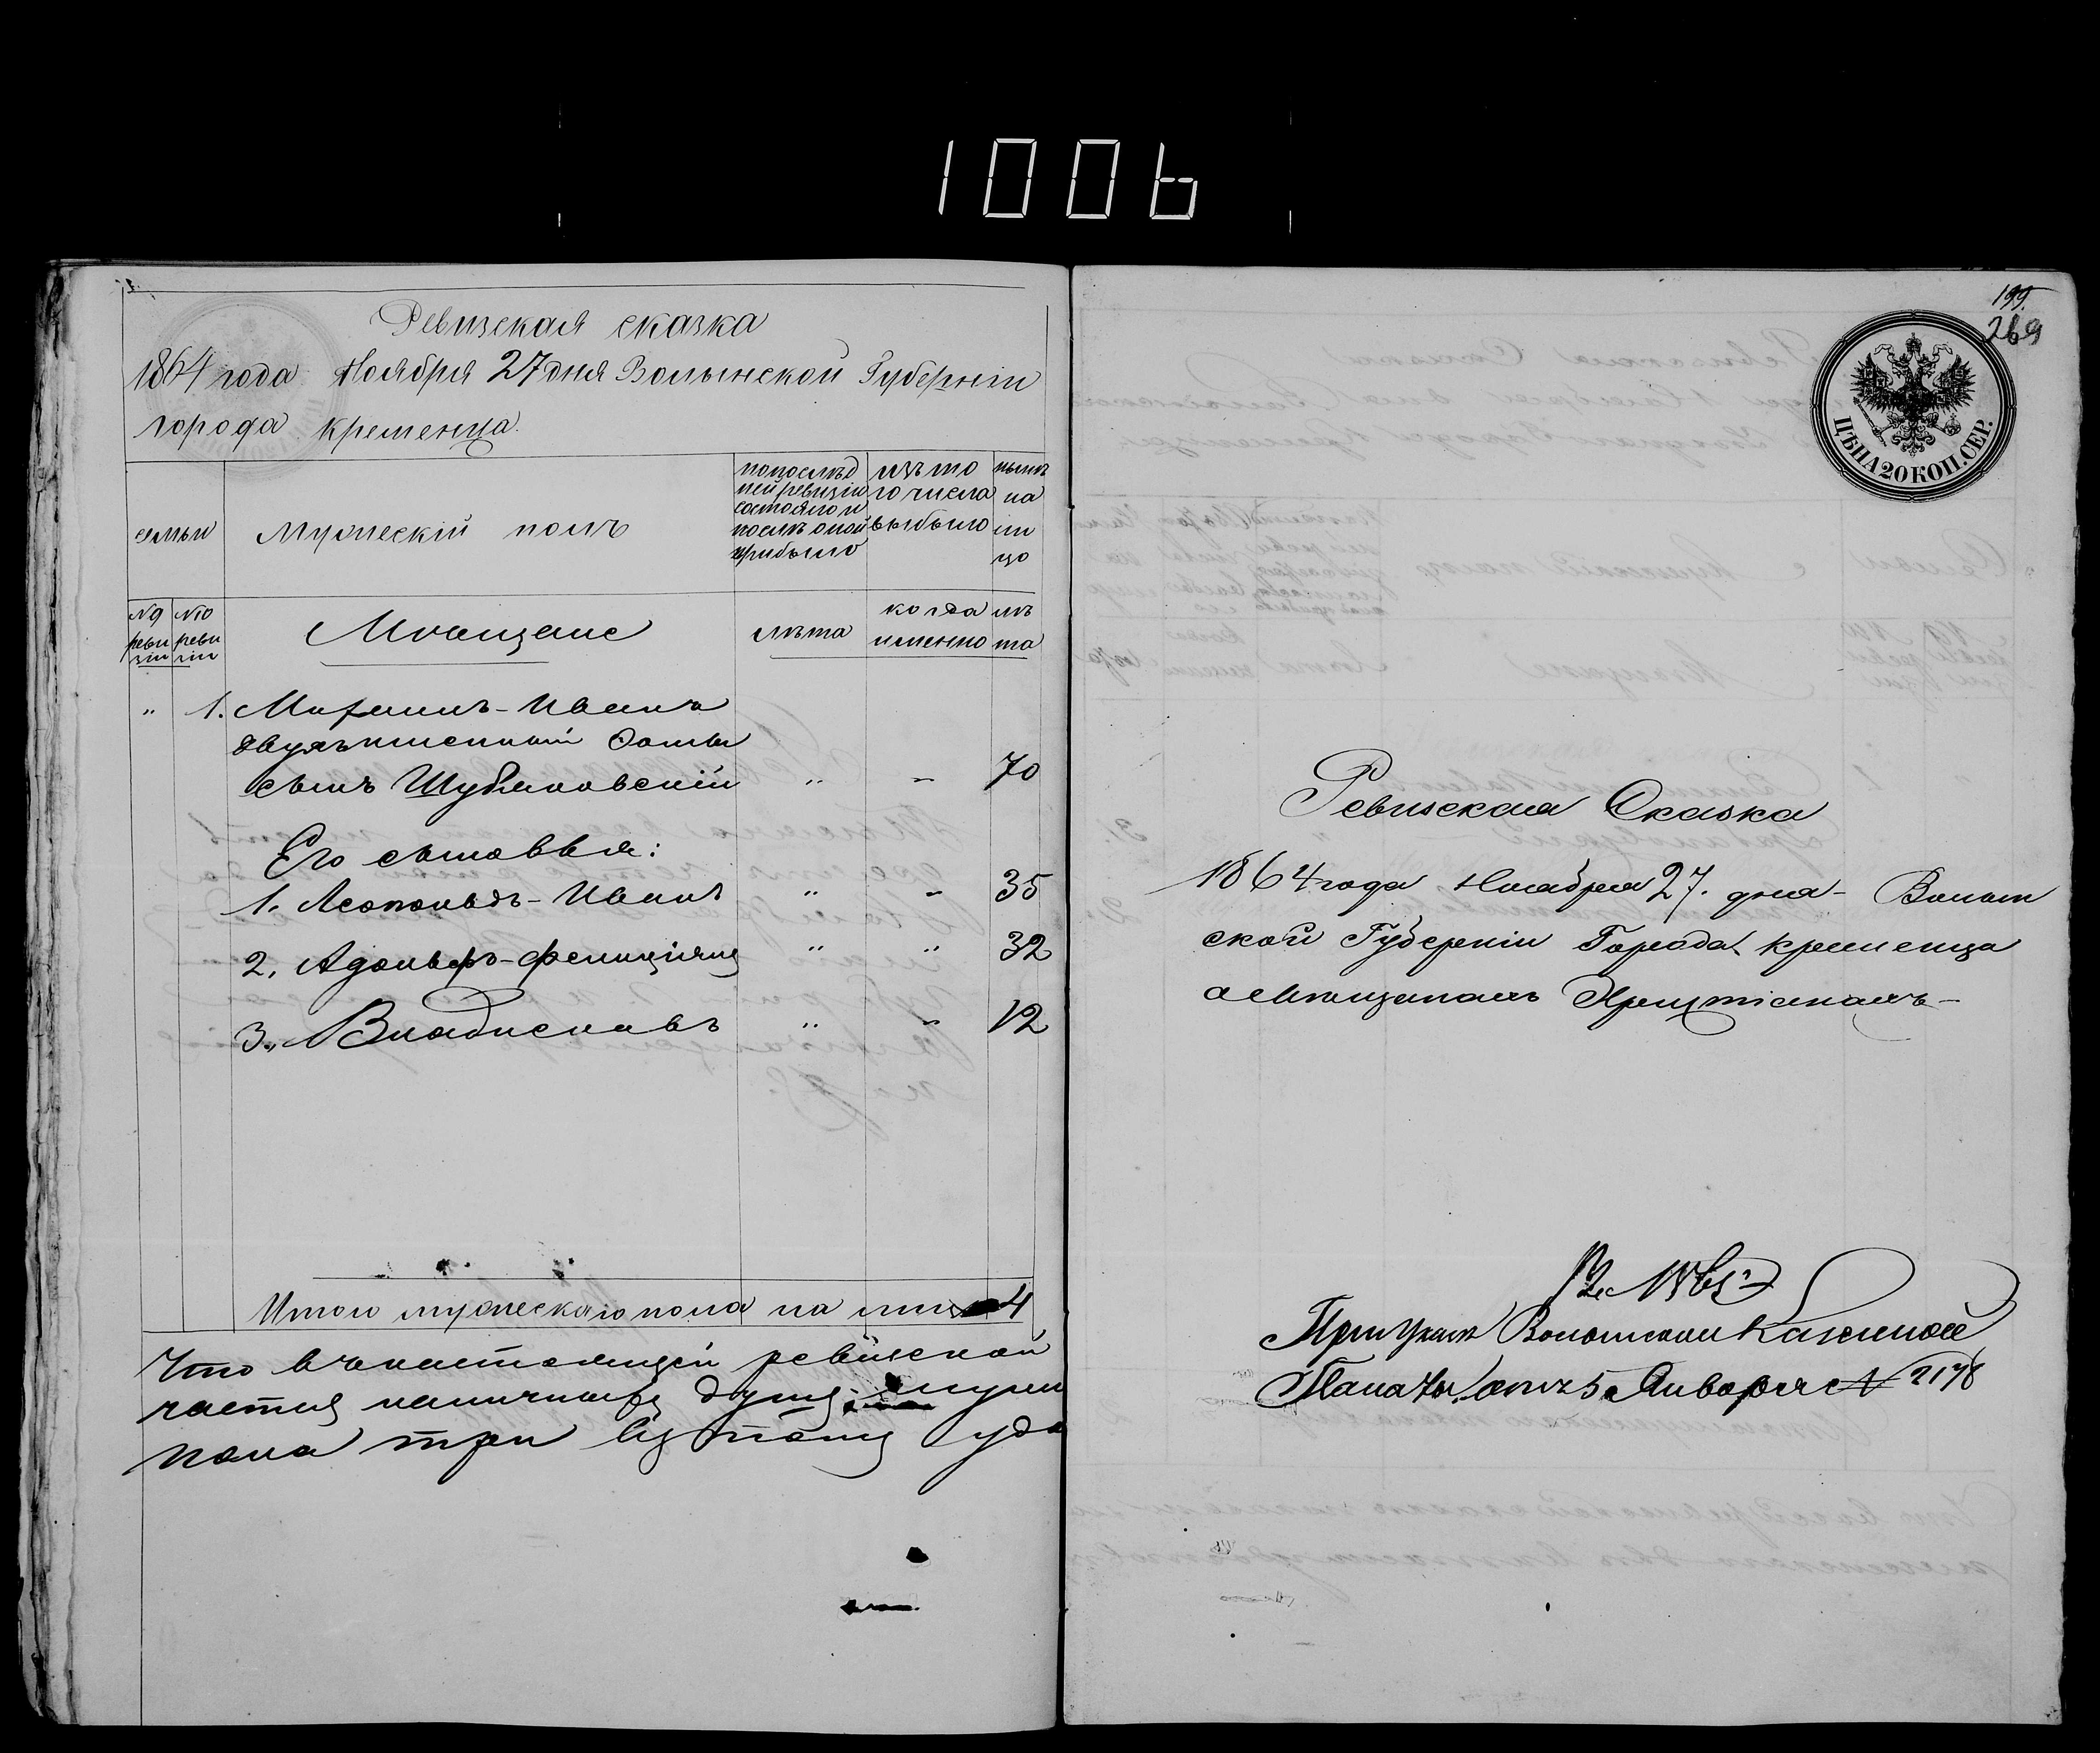 1006
Ревизская сказка
1864 года Ноября 27 дня Волынской Губерніи
города Кременца.
семьи
Мужескій полъ
попослѣд
ней ревизіи
состояло и
послѣ оной
прибыло
изъ то
го числа
выбыло
нынѣ
на
ли
цо
№9
реви
зіи
№10
реви
зіи
Мѣщане
лѣта
когда
именно
лѣ
та
" 1. Иванъ
двухъименный
сынъ " " 70
Его сыновья:
1. Леопольдъ-Иванъ " " 35
2. Адольфъ-Фелиціянъ " " 32
3. Владиславъ " " 12
Итого мужескаго пола на 4
Что въ настоящей ревизской
наличныхъ душъ
пола три
199.
269
ЦѢНА 20 КОП. СЕР.
Ревизская Сказка
1864 года Ноября 27. дня - Волын
ской Губерніи Города Кременца
о Мѣщанахъ Христіанахъ -
При указѣ Волынской Казенной
Палаты отъ 5 Января № 2178